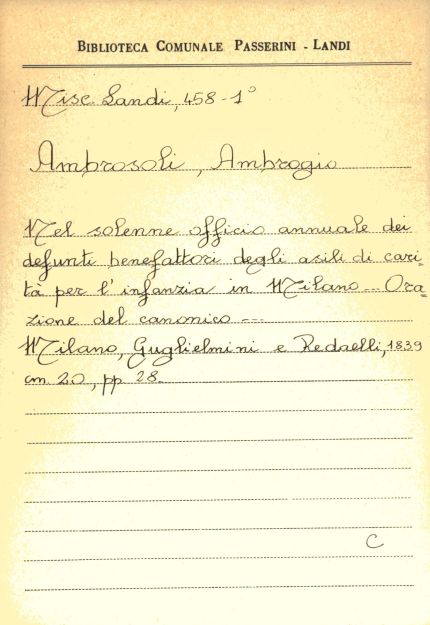 BIBLIOTECA COMUNALE PASSERINI - LANDI
Misc. Landi, 458-1°
Ambrosoli, Ambrogio
Nel solenne officio annuale dei
defunti benefattori degli asili di cari-
tà per l'infanzia in Milano... Ora-
zione del canonico ...
Milano, Guglielmini e Redaelli, 1839
cm. 20, pp. 28.
C